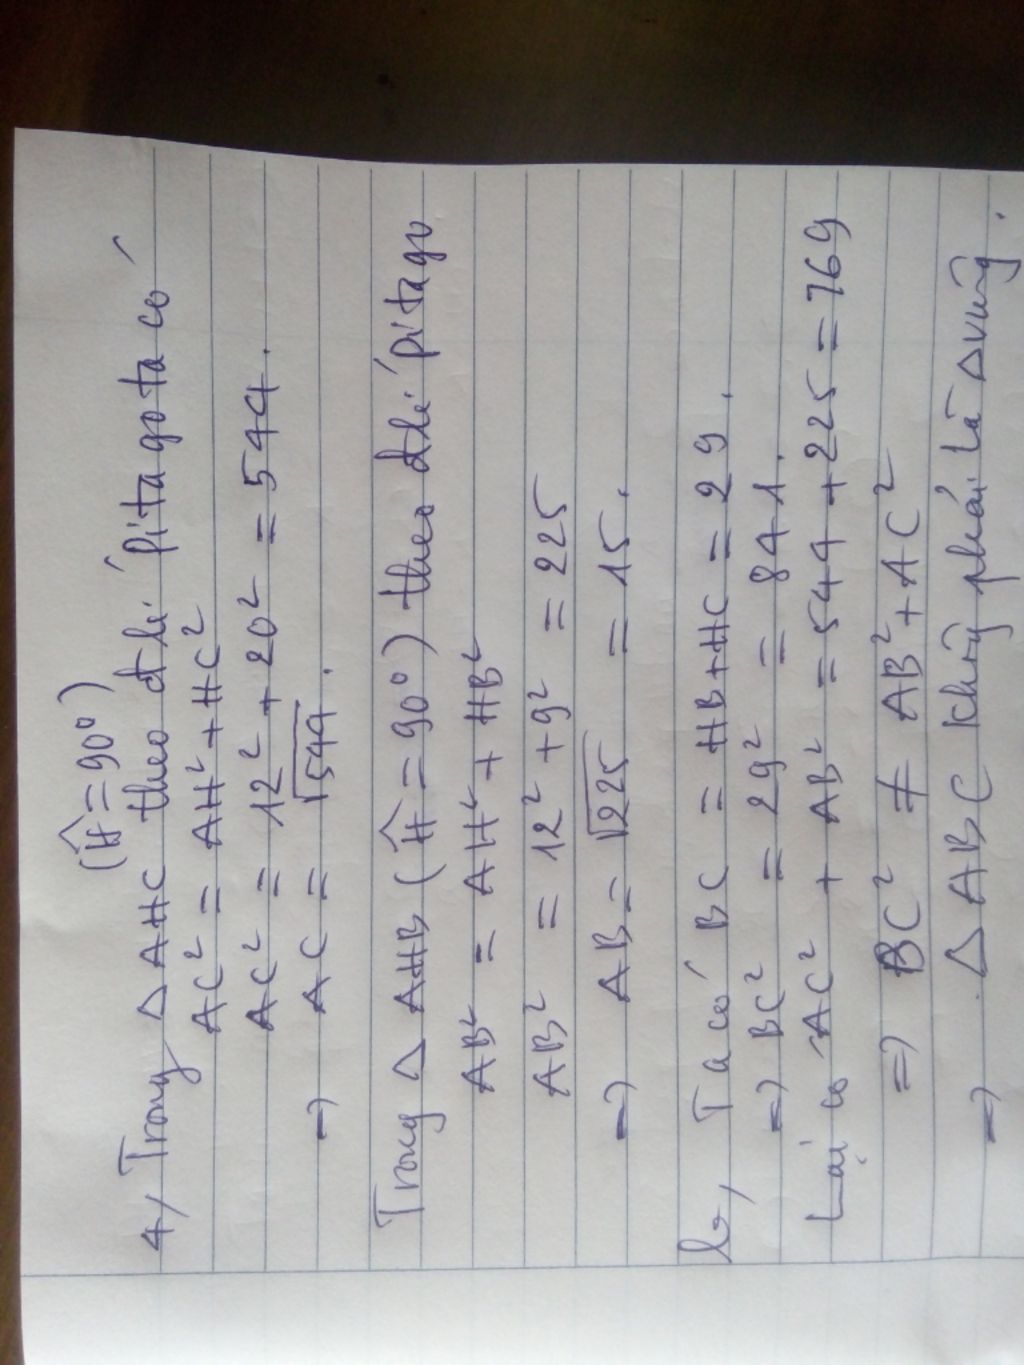 (Ĥ = 90°)
4, Trong Δ AHC theo đlí pitago ta có
AC² = AH² + HC²
AC² = 12² + 20² = 544.
=> AC = √544.
Trong Δ AHB (Ĥ = 90°) theo đlí pitago
AB² = AH² + HB²
AB² = 12² + 9² = 225
=> AB = √225 = 15.
b, Ta có BC = HB + HC = 29.
=> BC² = 29² = 841.
Lại có AC² + AB² = 544 + 225 = 769
=> BC² ≠ AB² + AC²
=> Δ ABC không phải là Δ vuông.